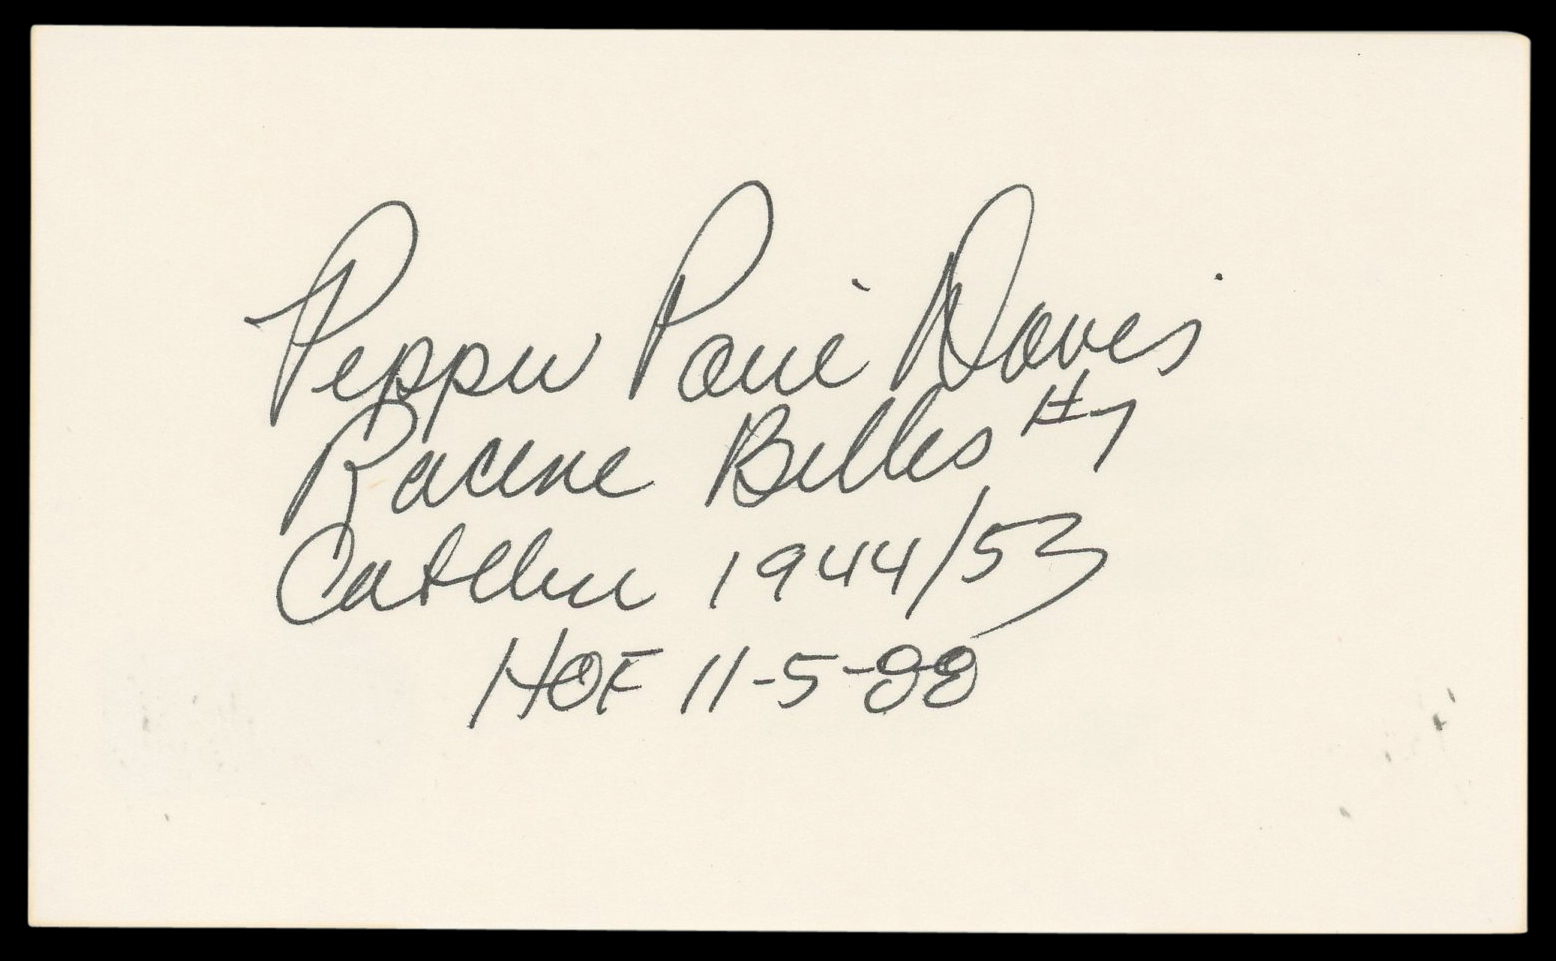 Pepper Paire Davis
Racine Belles #7
Catcher 1944/53
HOF 11-5-88